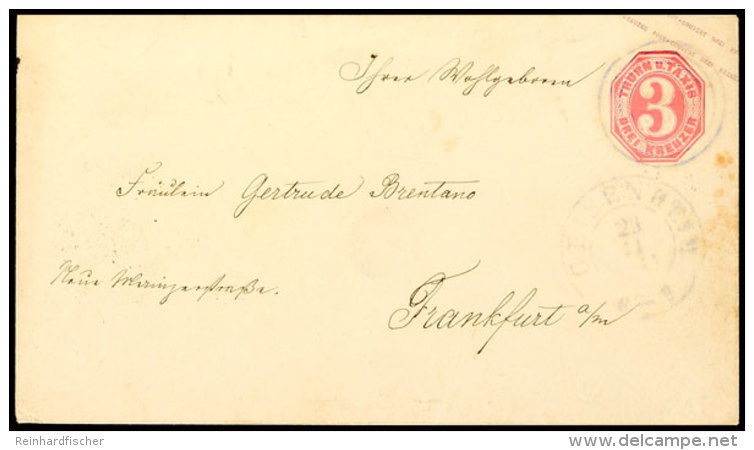 Ihrer Wohlgeboren
THURN U. TAXIS
3
DREI KREUZER
Fräulein Gertrude Brentano
Neue Mainzerstraße.
Frankfurt a/m
Reinhardfischer
delcampe.net